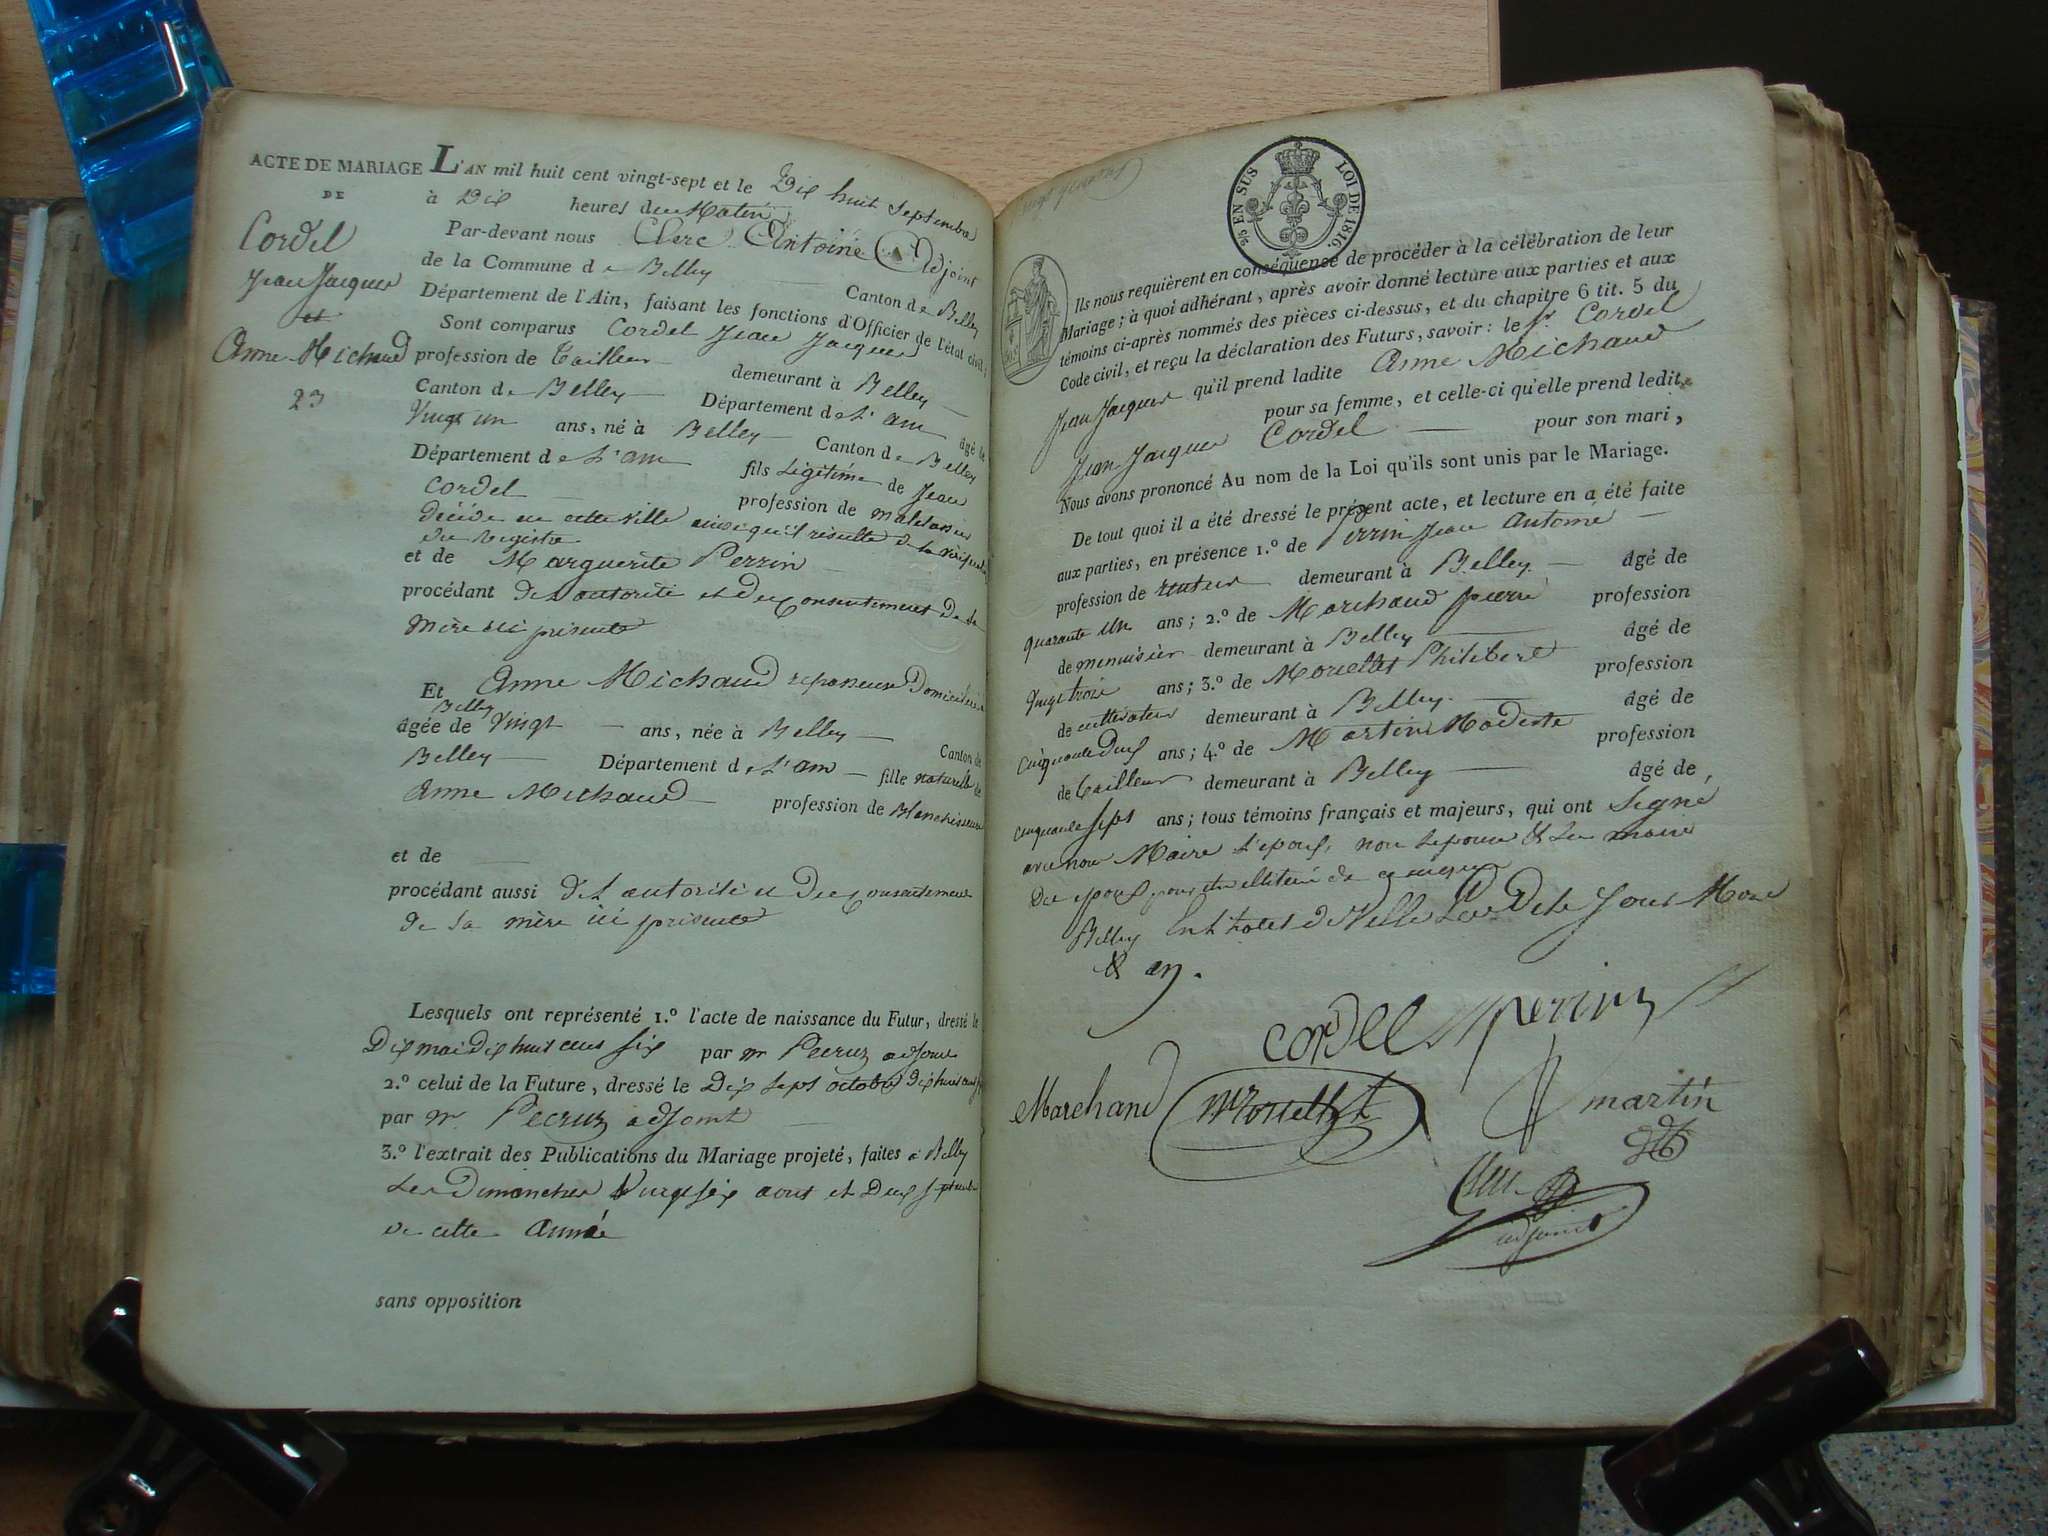 ACTE DE MARIAGE
DE
Cordel
Jean Jacques
et
Anne Michaud
23
L'AN mil huit cent vingt-sept et le Dix huit septembre
à Dix heures du Matin
Par-devant nous Clerc Antoine Adjoint
de la Commune de Belley Canton de Belley
Département de l'Ain, faisant les fonctions d'Officier de l'état civil,
Sont comparus Cordel Jean Jacques
profession de Tailleur demeurant à Belley
Canton de Belley Département de L'ain âgé de
Vingt un ans, né à Belley Canton de Belley
Département de L'ain fils Légitime de Jean
Cordel profession de
décédé en cette ville ainsi qu'il résulte de la
du registre
et de Marguerite Perrin
procédant de L'autorité et du Consentement de sa
mère ici présente
Et Anne Michaud repasseuse Domiciliée
Belley
âgée de Vingt ans, née à Belley Canton de
Belley Département de L'ain fille naturelle de
Anne Michaud profession de Blanchisseuse
et de
procédant aussi de L'autorité et du Consentement
de sa mère ici présente
Lesquels ont représenté 1.º l'acte de naissance du Futur, dressé le
Dix mai dix huit cent six par mr Pecruz adjoint
2.º celui de la Future, dressé le Dix sept octobre dix huit cent
par mr Pecruz adjoint
3.º l'extrait des Publications du Mariage projeté, faites à Belley
Les Dimanches Vingt six août et Deux septembre
de cette année
sans opposition
EN SUS LOI DE 1816.
Ils nous requièrent en conséquence de procéder à la célébration de leur
Mariage; à quoi adhérant, après avoir donné lecture aux parties et aux
témoins ci-après nommés des pièces ci-dessus, et du chapitre 6 tit. 5 du
Code civil, et reçu la déclaration des Futurs, savoir: le Sr Cordel
Jean Jacques qu'il prend ladite Anne Michaud
pour sa femme, et celle-ci qu'elle prend ledit
Jean Jacques Cordel pour son mari,
Nous avons prononcé Au nom de la Loi qu'ils sont unis par le Mariage.
De tout quoi il a été dressé le présent acte, et lecture en a été faite
aux parties, en présence 1.º de Perrin Jean Antoine
profession de rentier demeurant à Belley âgé de
quarante un ans; 2.º de Marchand pierre profession
de menuisier demeurant à Belley âgé de
Vingt trois ans; 3.º de Mouellet Philibert profession
de cultivateur demeurant à Belley âgé de
Cinquante Deux ans; 4.º de Martin Modeste profession
de Tailleur demeurant à Belley âgé de
cinquante sept ans; tous témoins français et majeurs, qui ont Signé
avec nous Maire L'époux, non L'épouse & Les
de ce requis
Belley En L'hotel de Ville Les Dits Jour Mois
& an.
cordel perrin
Marchand Mouellet martin
Clerc
adjoint